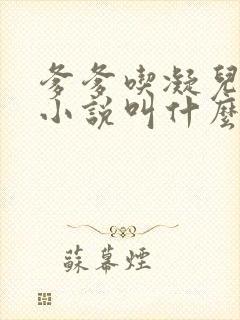 爹爹喫凝兒
小說叫什麼
蘇幕煙